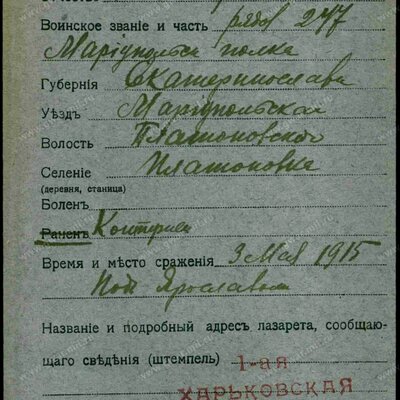 Воинское званіе и часть рядов 277
Маріупольск полка
Губернія Екатеринослав
Уѣздъ Маріупольская
Волость Платоновской
Селеніе Платоновка
(деревня, станица)
Боленъ
Раненъ Контужен
Время и мѣсто сраженія 3 Мая 1915
Под Ярославом
Названіе и подробный адресъ лазарета, сообщаю-
щаго свѣдѣнія (штемпель) 1-ая
ХАРЬКОВСКАЯ